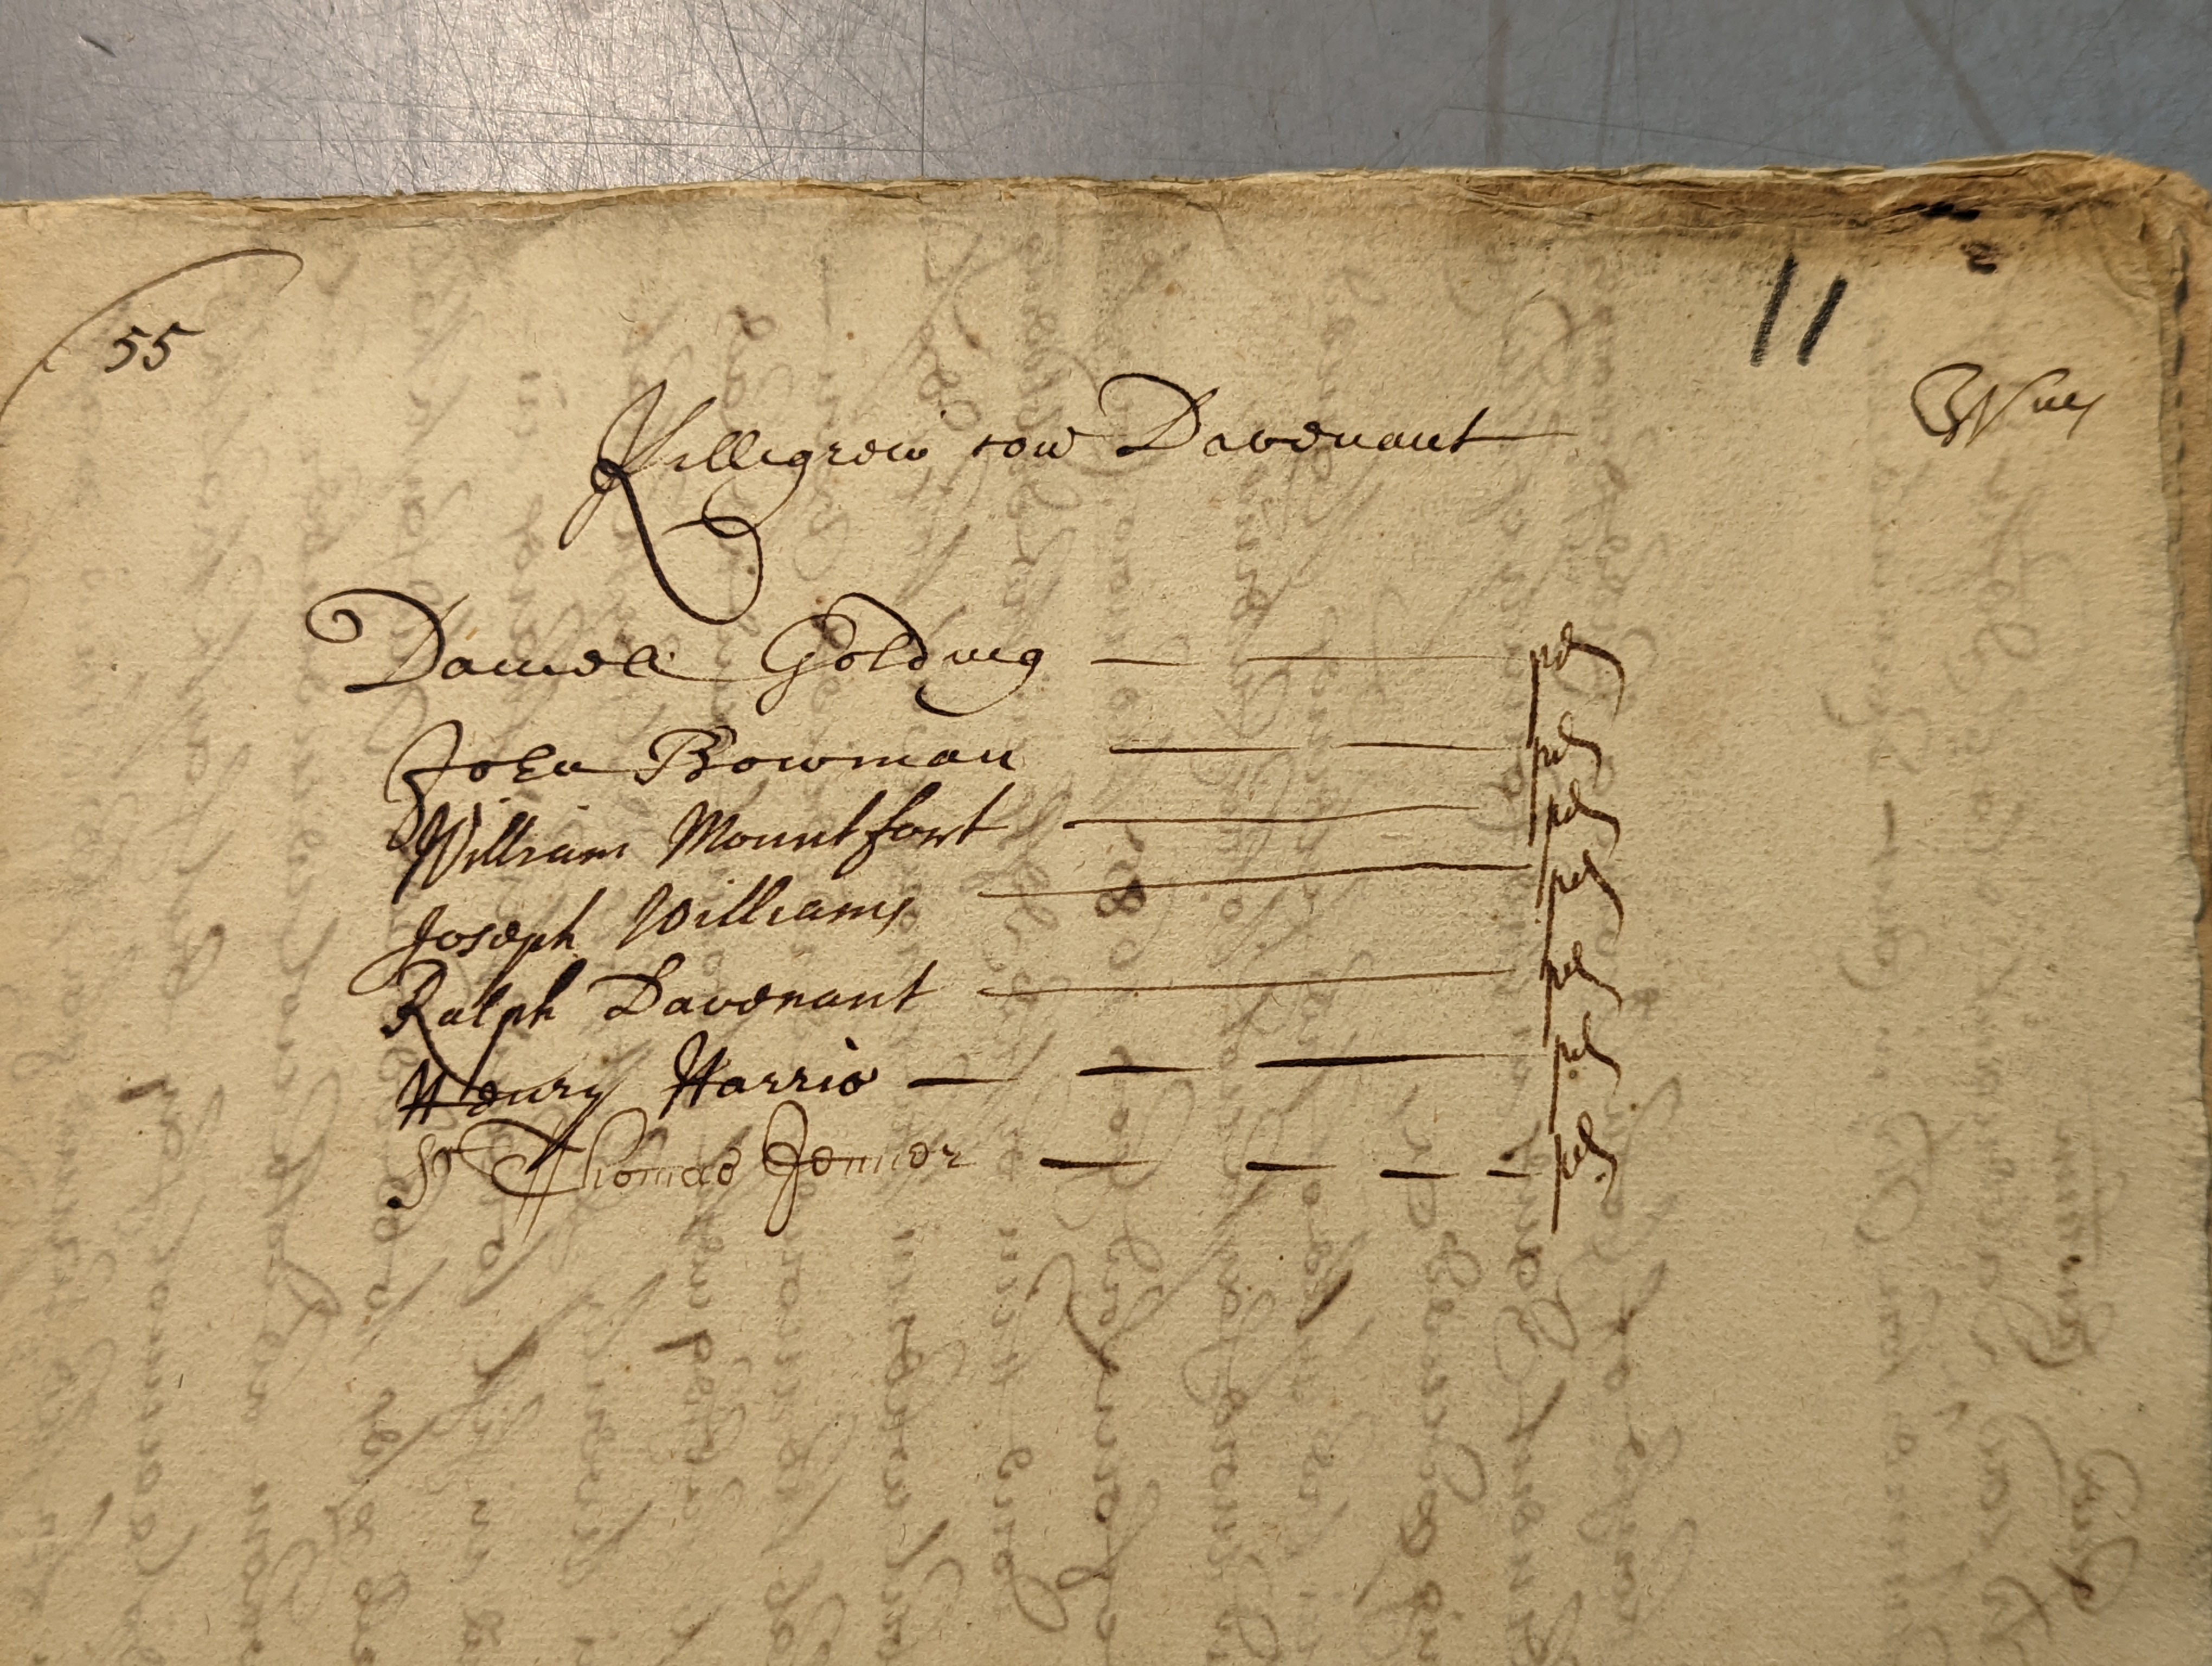 55
11
Killegrew con Davenant
Daniel Golding — — pd
John Bowman — — pd
William Mountfort — pd
Joseph Williams — pd
Ralph Davenant — pd
Henry Harris — — — pd
Sr Thomas Jenner — — — — pd